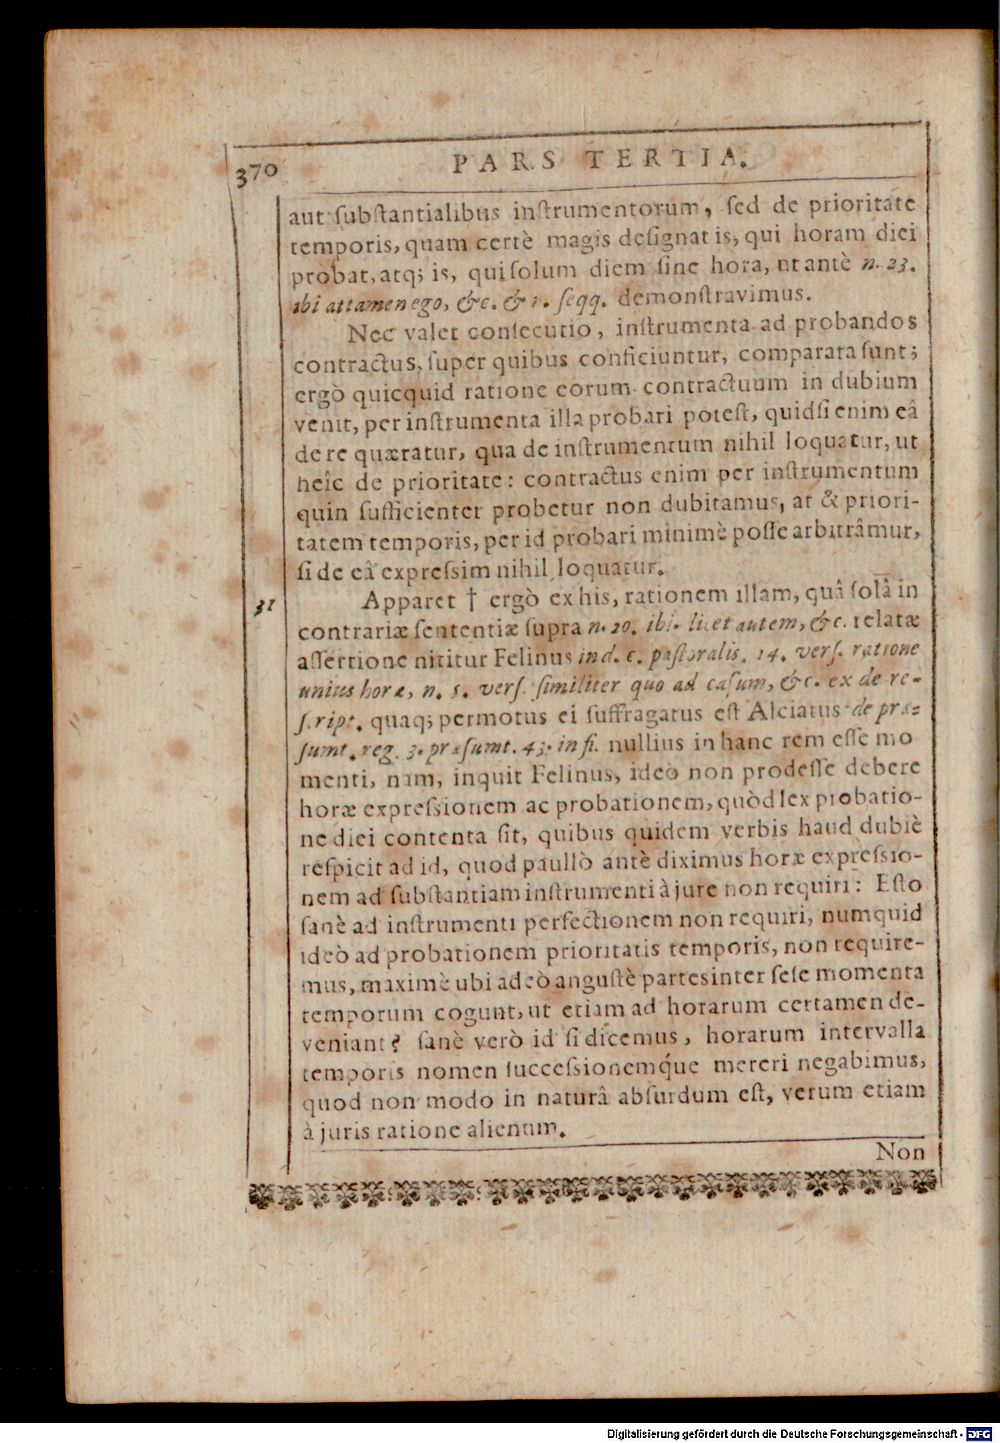 370
PARS TERTIA.
aut ſubſtantialibus inſtrumentorum, ſed de prioritate
temporis, quam certè magis deſignat is, qui horam diei
probat, atq; is, qui ſolum diem ſine hora, ut antè n. 23.
ibi attamen ego, &c. & i. ſeqq. demonſtravimus.
Nec valet conſecutio, inſtrumenta ad probandos
contractus, ſuper quibus conficiuntur, comparata ſunt;
ergò quicquid ratione eorum contractuum in dubium
venit, per inſtrumenta illa probari poteſt, quidſi enim eâ
de re quæratur, qua de inſtrumentum nihil loquatur, ut
heîc de prioritate: contractus enim per inſtrumentum
quin ſufficienter probetur non dubitamus, at & priori-
tatem temporis, per id probari minimè poſſe arbitrâmur,
ſi de eâ expreſsim nihil loquatur.
31 Apparet † ergò ex his, rationem illam, quâ ſolâ in
contrariæ ſententiæ ſupra n. 20. ibi. licet autem, &c. relatæ
aſſertione nititur Felinus in d. c. paſtoralis. 14. verſ. ratione
unius horæ, n. 5. verſ. ſimiliter quo ad caſum, &c. ex de re-
ſcript. quaq; permotus ei ſuffragatus eſt Alciatus de præ-
ſumt. reg. 3. præſumt. 43. in fi. nullius in hanc rem eſſe mo
menti, nam, inquit Felinus, ideò non prodeſſe debere
horæ expreſsionem ac probationem, quòd lex probatio-
ne diei contenta ſit, quibus quidem verbis haud dubiè
reſpicit ad id, quod paullò antè diximus horæ expreſsio-
nem ad ſubſtantiam inſtrumenti à jure non requiri: Eſto
ſanè ad inſtrumenti perfectionem non requiri, numquid
ideò ad probationem prioritatis temporis, non require-
mus, maximè ubi adeò anguſtè partes inter ſeſe momenta
temporum cogunt, ut etiam ad horarum certamen de-
veniant? ſanè verò id ſi dicemus, horarum intervalla
temporis nomen ſucceſsionemq́ue mereri negabimus,
quod non modo in naturâ abſurdum eſt, verum etiam
à juris ratione alienum.
Non
Digitalisierung gefördert durch die Deutsche Forschungsgemeinschaft - DFG